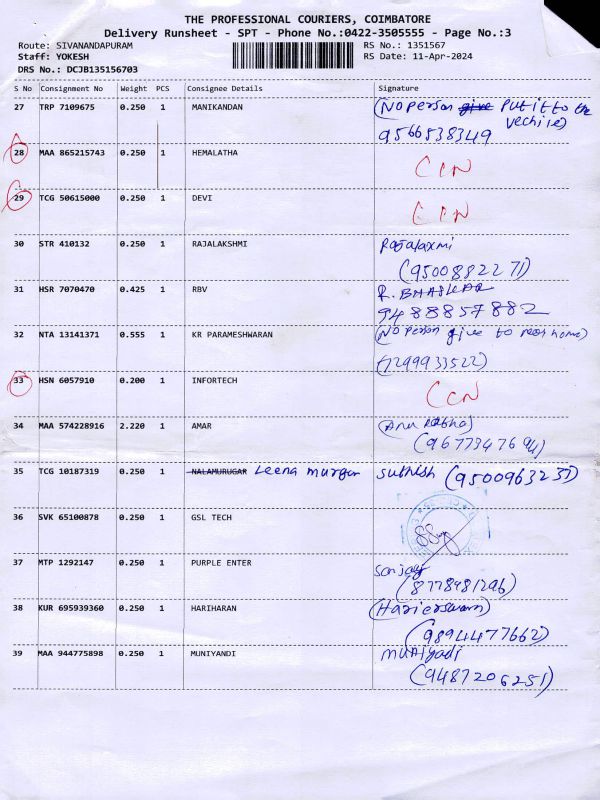 THE PROFESSIONAL COURIERS, COIMBATORE
Delivery Runsheet - SPT - Phone No.:0422-3505555 - Page No.:3
Route: SIVANANDAPURAM RS No.: 1351567
Staff: YOKESH RS Date: 11-Apr-2024
DRS No.: DCJB135156703
S No Consignment No Weight PCS Consignee Details Signature
27 TRP 7109675 0.250 1 MANIKANDAN (No person give put it to the
vechire)
9566538349
28 MAA 865215743 0.250 1 HEMALATHA CCN
29 TCG 50615000 0.250 1 DEVI CCN
30 STR 410132 0.250 1 RAJALAKSHMI Rajalaxmi
(9500882271)
31 HSR 7070470 0.425 1 RBV R. BHASKAR
9488857882
32 NTA 13141371 0.555 1 KR PARAMESHWARAN (No person give to near home)
(7299933522)
33 HSN 6057910 0.200 1 INFORTECH CCN
34 MAA 574228916 2.220 1 AMAR
(9677347694)
35 TCG 10187319 0.250 1 NALAMURUGAR Leena murgan suthish (9500963237)
36 SVK 65100878 0.250 1 GSL TECH
37 MTP 1292147 0.250 1 PURPLE ENTER Sanjay
(8778981296)
38 KUR 695939360 0.250 1 HARIHARAN (Harierswarn)
(9894477662)
39 MAA 944775898 0.250 1 MUNIYANDI muniyadi
(9487206251)